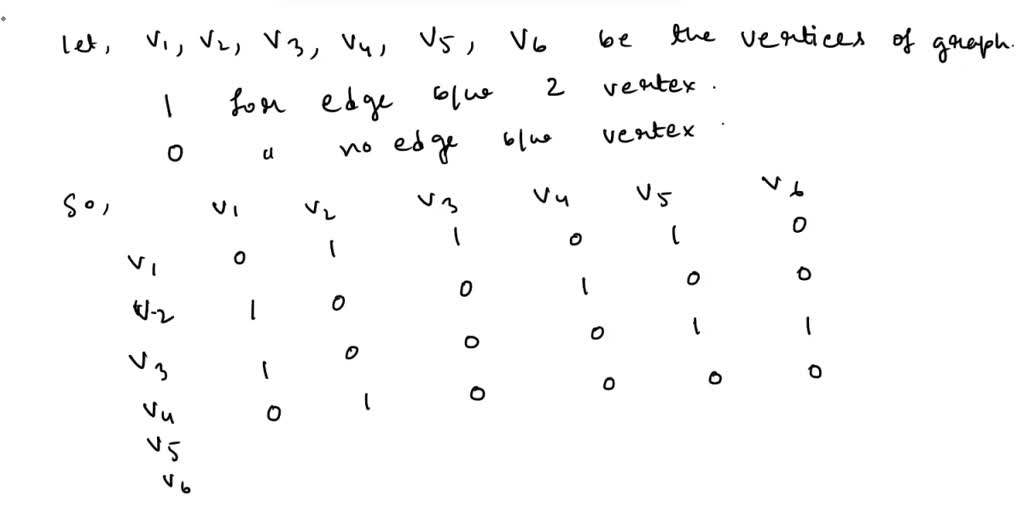 let, v1, v2, v3, v4, v5, v6 be the vertices of graph.
1 for edge b/w 2 vertex.
0 " no edge b/w vertex.
So, v1 v2 v3 v4 v5 v6
v1 0 1 1 0 1 0
v2 1 0 0 1 0 0
v3 1 0 0 0 1 1
v4 0 1 0 0 0 0
v5
v6